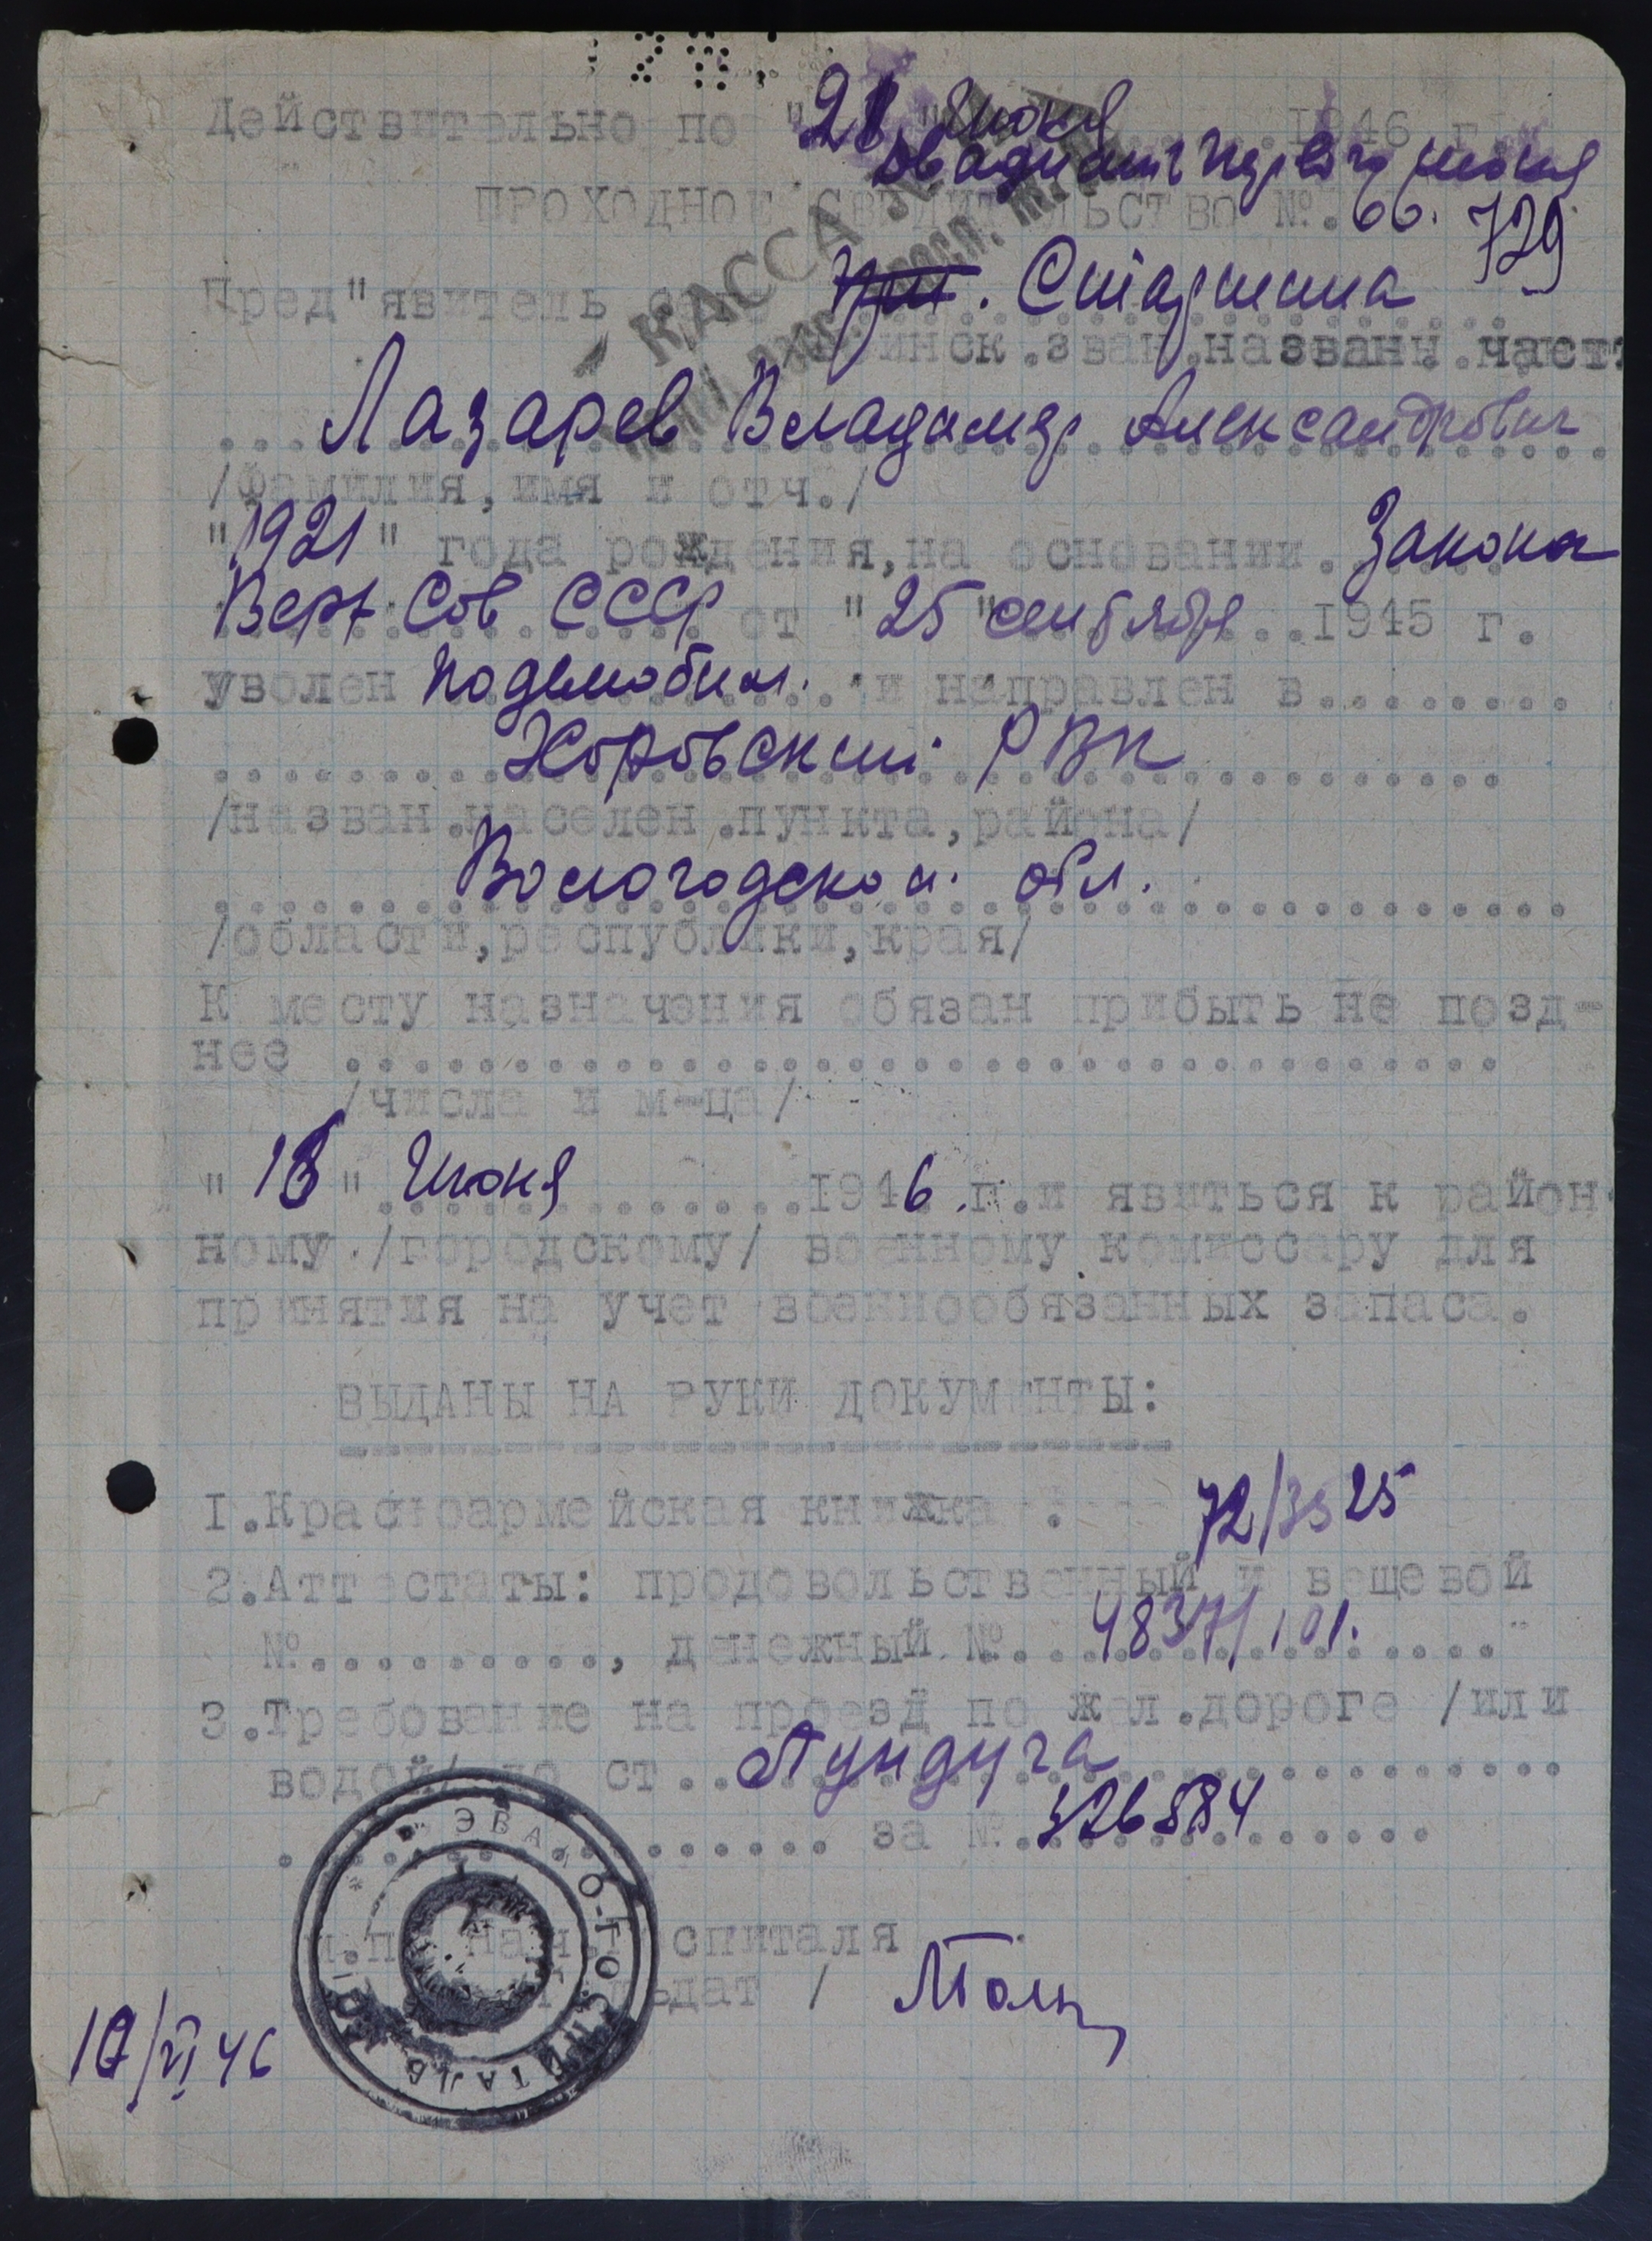 Действительно по "21" июня 1946 г.
двадцать первого июня
ПРОХОДНОЕ СВИДЕТЕЛЬСТВО №. 66. 729
КАССА №
Пред"явитель сего Старшина
воинск.зван.названи.част.
Лазарев Владимир Александрович
/Фамилия, имя и отч./
"1921" года рождения, на основании Закона
Верх Сов СССР от "25" сентября 1945 г.
уволен подемобил. и направлен в.........
РВК
/назван.населен.пункта, района/
Вологодской обл.
/области, республики, края/
К месту назначения обязан прибыть не позд-
нее ..................................
/числа и м-ца/
"18" Июня 1946.г.и явиться к район-
ному /городскому/ военному комиссару для
принятия на учет военнообязанных запаса.
ВЫДАНЫ НА РУКИ ДОКУМЕНТЫ:
1.Красноармейская книжка : 72/3525
2.Аттестаты: продовольственный и вещевой
№.........., денежный №. 48371/101.
3.Требование на проезд по жел.дороге /или
водой/ до ст.. Пундуга
за № 326584
* ЭВАКО-ГОСПИТАЛЬ
н.п. Нач. госпиталя
10/VI 46